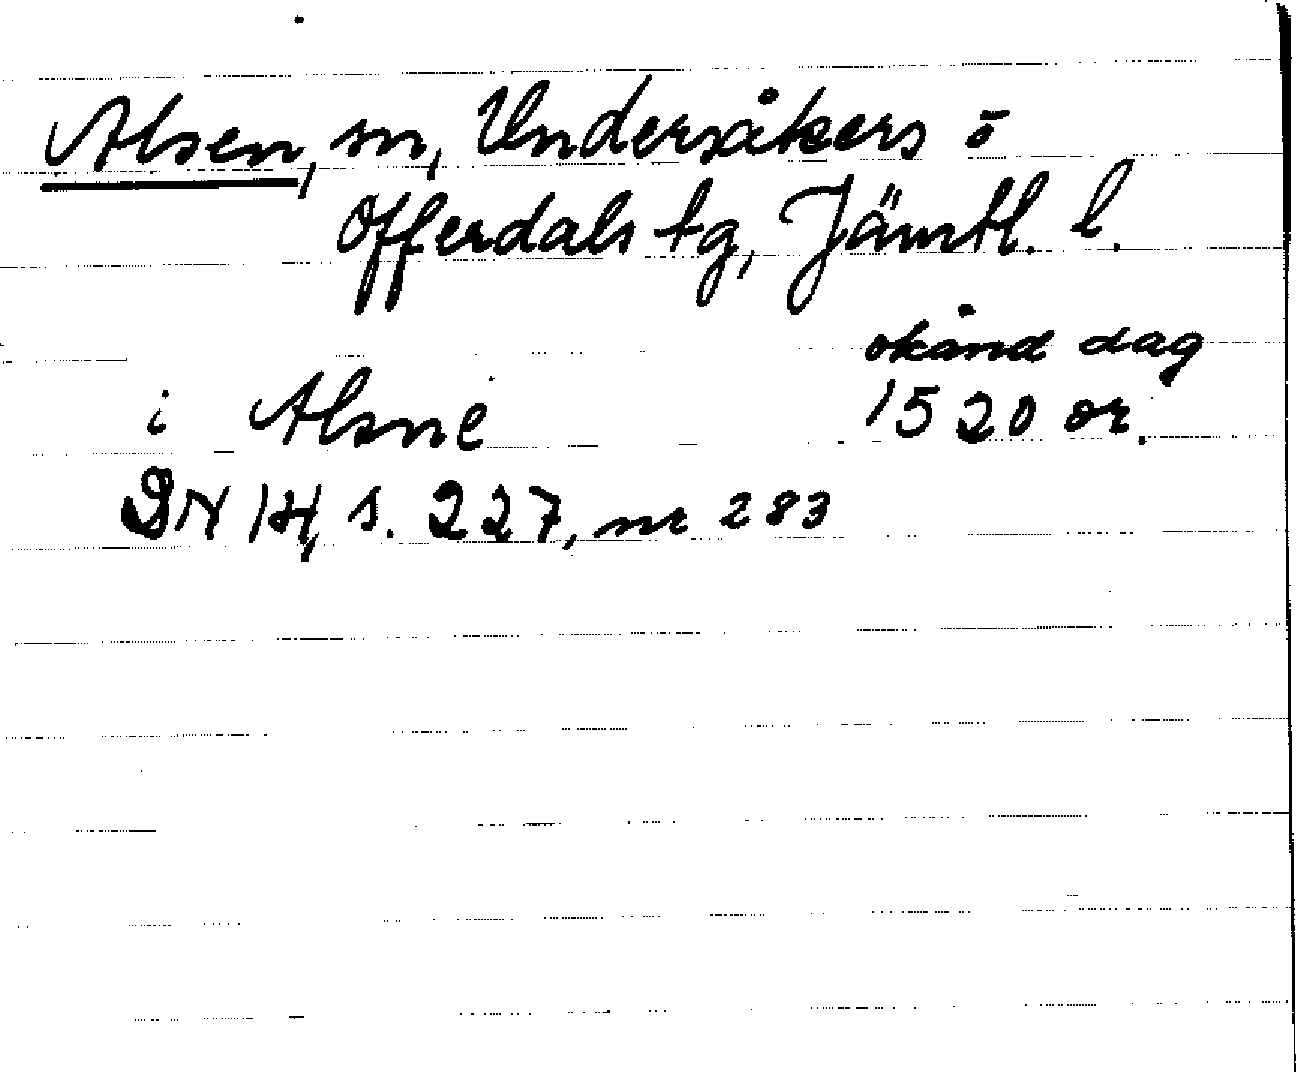 Alsen, sn, Undersåkers o
Offerdals tg, Jämtl. l.
okänd dag
i Alsne 1520 or.
DN 14, s. 227, nr 283